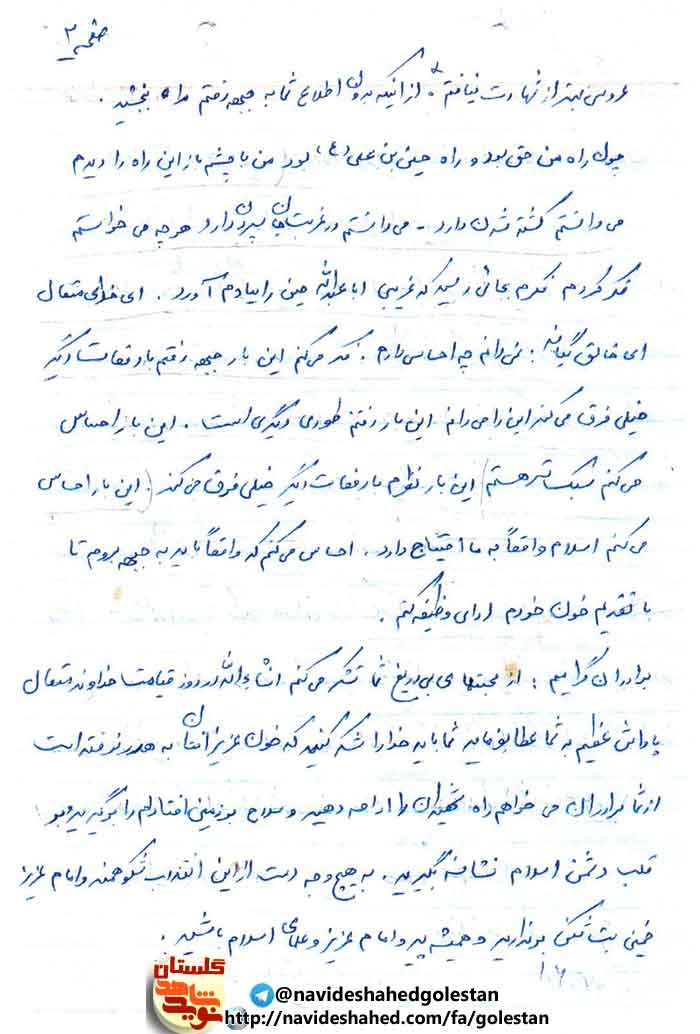 صفحه ۲
عروس بهتر از شهادت نیافتم. از اینکه بدون اطلاع شما به جبهه رفتم مرا ببخشید.
چون راه من حق بود و راه حسین بن علی (ع) بود من با چشم باز این راه را دیدم
می دانستم کشته شدن دارد - می دانستم در غربت جان سپردن دارد و هر چه می خواستم
فکر کردم فکرم بجائی رسید که غریبی ابا عبدالله حسین را بیادم آورد. ای خدای متعال
ای خالق یگانه: نمی دانم چه احساس دارم. فکر می کنم این بار جبهه رفتنم با دفعات دیگر
خیلی فرق می کند این را می دانم این بار رفتنم طوری دیگری است. این بار احساس
می کنم سبک تر هستم (این بار نظرم با دفعات دیگر خیلی فرق می کند) این بار احساس
می کنم اسلام واقعاً به ما احتیاج دارد. احساس می کنم که واقعاً باید به جبهه بروم تا
با تقدیم خون خودم ادای وظیفه کنم.
برادران گرامیم: از محبتهای بی دریغ شما تشکر می کنم انشاءالله در روز قیامت خداوند متعال
پاداش عظیم به شما عطا بفرماید شما باید خدا را شکر کنید که خون عزیزانتان به هدر نرفته است
از شما برادران می خواهم راه شهیدان را ادامه دهید و سلاح بر زمین افتاده ام را برگیرید و بر
قلب دشمن اسلام نشانه بگیرید. به هیچ وجه دست از این انقلاب شکوهمند و امام عزیز
خمینی بت شکن برندارید و همیشه پیرو امام عزیز و علمای اسلام باشید.
گلستان
نوید شاهد
@navideshahedgolestan
http://navideshahed.com/fa/golestan